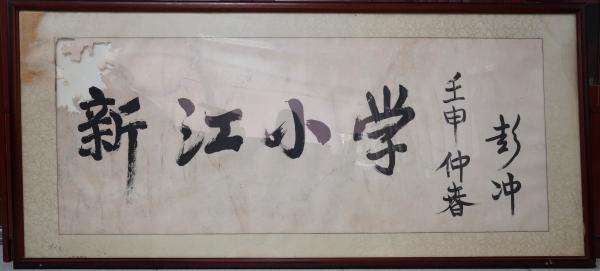 新江小学
壬申仲春
彭冲